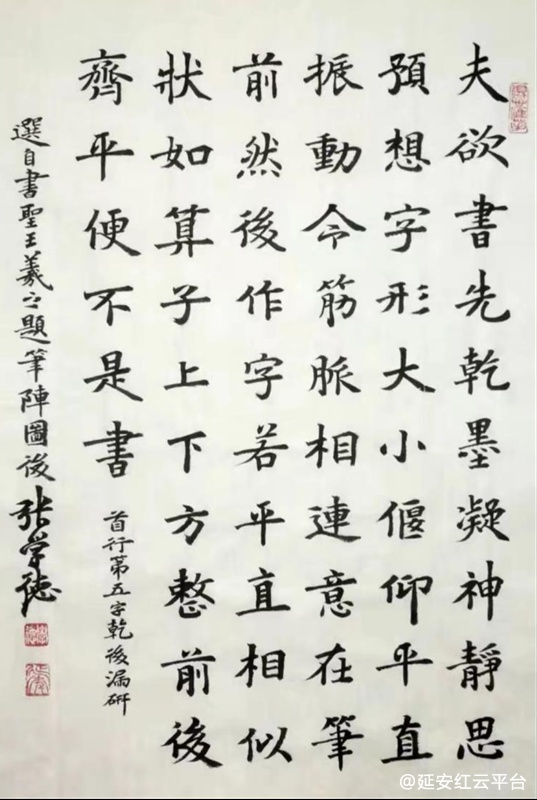 夫欲書先乾墨凝神靜思
預想字形大小偃仰平直
振動令筋脈相連意在筆
前然後作字若平直相似
狀如算子上下方整前後
齊平便不是書
首行第五字乾後漏研
選自書聖王羲之題筆陣圖後
張學德
@延安红云平台